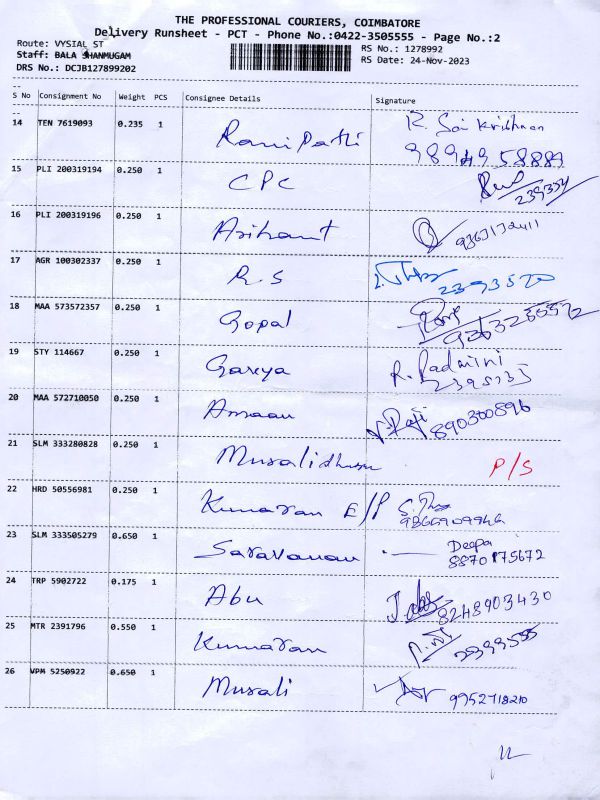 THE PROFESSIONAL COURIERS, COIMBATORE
Delivery Runsheet - PCT - Phone No.:0422-3505555 - Page No.:2
Route: VYSIAL ST
RS No.: 1278992
Staff: BALA SHANMUGAM
RS Date: 24-Nov-2023
DRS No.: DCJB127899202
S No Consignment No Weight PCS Consignee Details Signature
14 TEN 7619093 0.235 1 Rani Pathi R. Sai Krishnan
98949 58889
15 PLI 200319194 0.250 1 CPC
16 PLI 200319196 0.250 1 Arihant
17 AGR 100302337 0.250 1 R.S 2393520
18 MAA 573572357 0.250 1 Gopal
19 STY 114667 0.250 1 R. Padmini
20 MAA 572710050 0.250 1 Amaan V. Raji
890300896
21 SLM 333280828 0.250 1 P/S
22 HRD 50556981 0.250 1 Kumaran E/P
23 SLM 333505279 0.650 1 Saravanan Deepa
8870175672
24 TRP 5902722 0.175 1 Abu 8248903430
25 MTR 2391796 0.550 1 Kumaran
26 VPM 5250922 0.650 1 Murali 9952718210